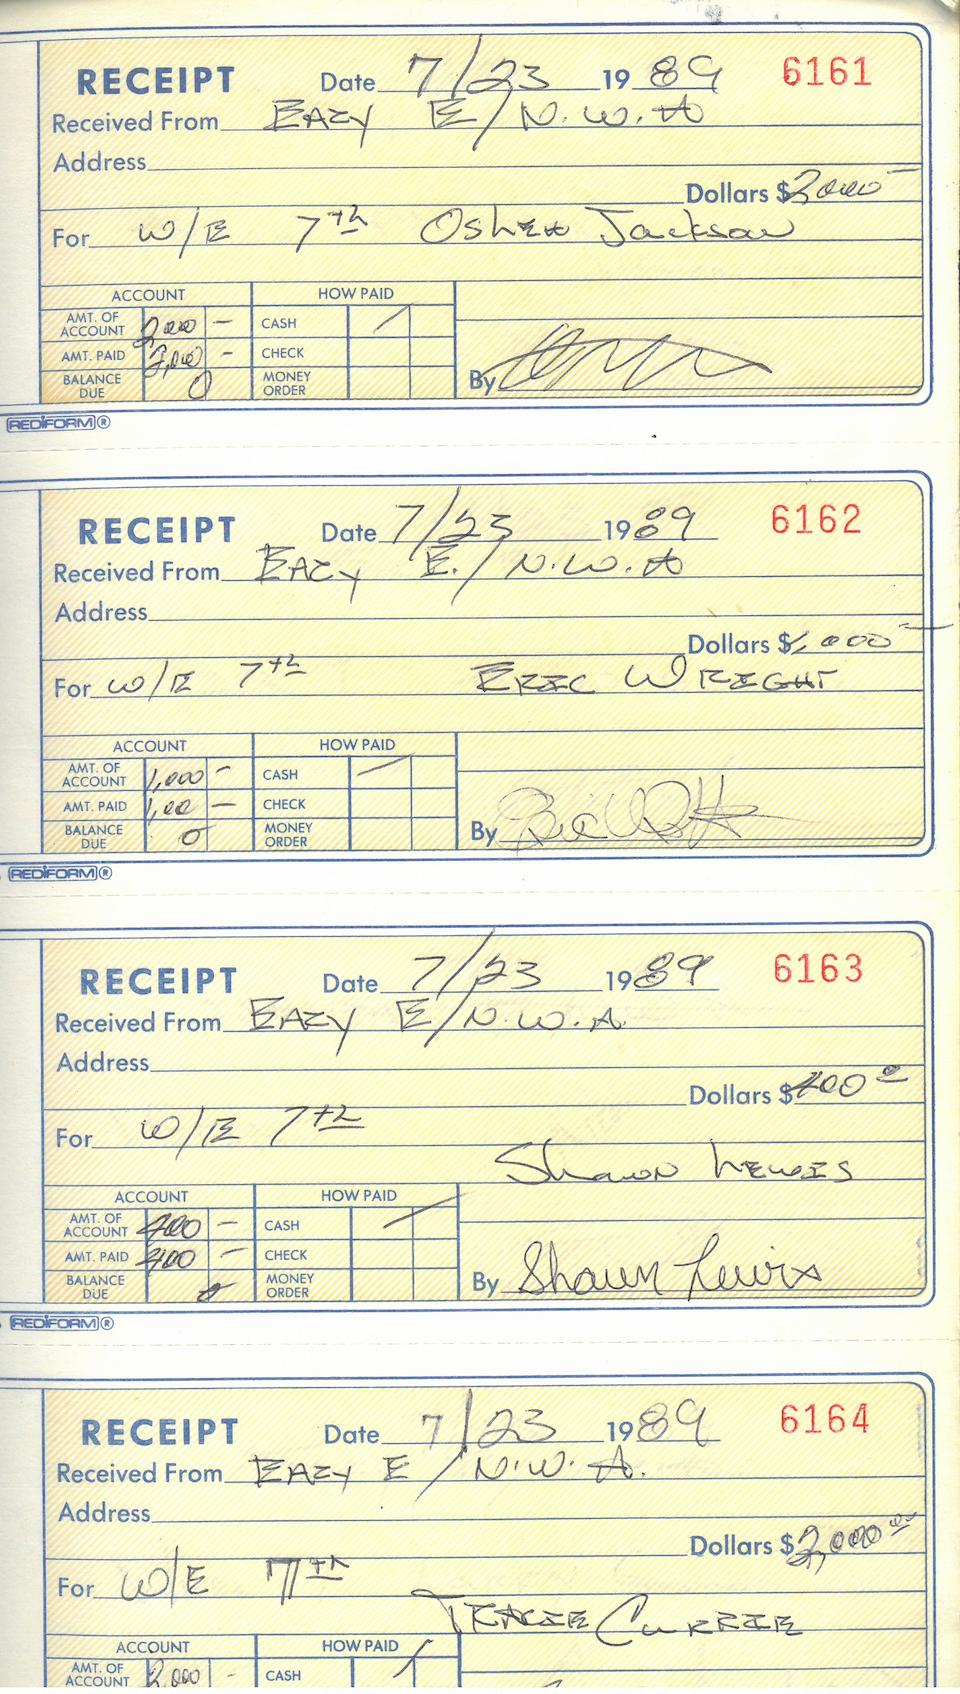 RECEIPT Date 7/23 1989 6161
Received From EAZY E/N.W.A
Address
Dollars $2000 —
For W/E 7th Oshea Jackson
ACCOUNT HOW PAID
AMT. OF ACCOUNT 2,000 — CASH /
AMT. PAID 2,000 — CHECK
BALANCE DUE 0 MONEY ORDER
By
REDIFORM®
RECEIPT Date 7/23 1989 6162
Received From EAZY E./N.W.A
Address
Dollars $1,000 —
For W/E 7th ERIC WRIGHT
ACCOUNT HOW PAID
AMT. OF ACCOUNT 1,000 — CASH /
AMT. PAID 1,00 — CHECK
BALANCE DUE 0 MONEY ORDER
By Eric Wright
REDIFORM®
RECEIPT Date 7/23 1989 6163
Received From EAZY E/N.W.A.
Address
Dollars $400
For W/E 7th
Shawn Lewis
ACCOUNT HOW PAID
AMT. OF ACCOUNT 400 — CASH /
AMT. PAID 400 — CHECK
BALANCE DUE MONEY ORDER
By Shawn Lewis
REDIFORM®
RECEIPT Date 7/23 1989 6164
Received From EAZY E/N.W.A.
Address
Dollars $2,000
For W/E 7th
TRACIE CURRIE
ACCOUNT HOW PAID
AMT. OF ACCOUNT 2,000 — CASH /